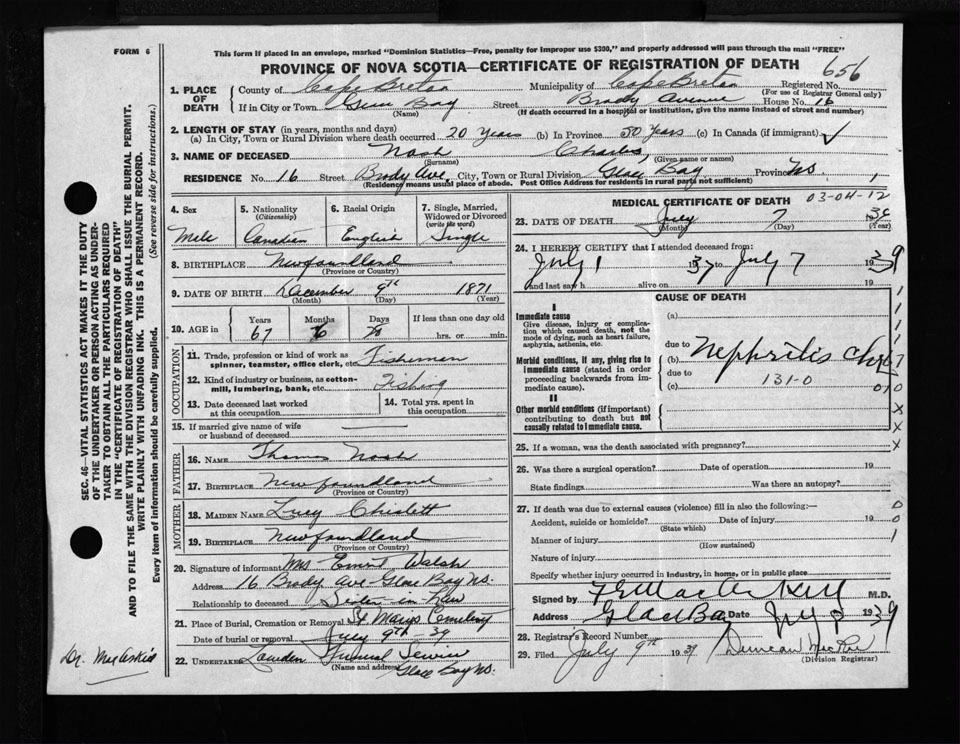 FORM 6
This form if placed in an envelope, marked "Dominion Statistics—Free, penalty for improper use $300," and properly addressed will pass through the mail "FREE"
PROVINCE OF NOVA SCOTIA—CERTIFICATE OF REGISTRATION OF DEATH
656
1. PLACE OF DEATH
County of Cape Breton Municipality of Cape Breton Registered No.
(For use of Registrar General only)
If in City or Town Glace Bay Street Brody Avenue House No. 16
(Name) (If death occurred in a hospital or institution, give the name instead of street and number)
2. LENGTH OF STAY (in years, months and days)
(a) In City, Town or Rural Division where death occurred 20 Years (b) In Province 50 Years (c) In Canada (if immigrant)
3. NAME OF DECEASED Nash Charles
(Surname) (Given name or names)
RESIDENCE No. 16 Street Brody Ave, City, Town or Rural Division Glace Bay Province NS.
(Residence means usual place of abode. Post Office Address for residents in rural parts not sufficient)
4. Sex 5. Nationality (Citizenship) 6. Racial Origin 7. Single, Married, Widowed or Divorced (write the word)
Male Canadian English Single
8. BIRTHPLACE Newfoundland
(Province or Country)
9. DATE OF BIRTH December 9th 1871
(Month) (Day) (Year)
10. AGE in Years Months Days If less than one day old
67 hrs. or min.
OCCUPATION
11. Trade, profession or kind of work as spinner, teamster, office clerk, etc. Fisherman
12. Kind of industry or business, as cotton-mill, lumbering, bank, etc. Fishing
13. Date deceased last worked at this occupation
14. Total yrs. spent in this occupation
15. If married give name of wife or husband of deceased
FATHER
16. NAME Thomas Nash
17. BIRTHPLACE Newfoundland
(Province or Country)
MOTHER
18. MAIDEN NAME Lucy Chislett
19. BIRTHPLACE Newfoundland
(Province or Country)
20. Signature of informant Mrs Walsh
Address 16 Brody Ave Glace Bay NS.
Relationship to deceased Sister-in-law
21. Place of Burial, Cremation or Removal St Marys Cemetery
Date of burial or removal July 9th 39
22. Undertaker Funeral Service
(Name and address) Glace Bay NS.
MEDICAL CERTIFICATE OF DEATH
03-04-12
23. DATE OF DEATH July 7 1939
(Month) (Day) (Year)
24. I HEREBY CERTIFY that I attended deceased from:
July 1 1937 July 7 1939
and last saw h alive on 19
CAUSE OF DEATH
I
Immediate cause
Give disease, injury or complication which caused death, not the mode of dying, such as heart failure, asphyxia, asthenia, etc.
(a)
due to
Morbid conditions, if any, giving rise to immediate cause (stated in order proceeding backwards from immediate cause).
(b) Nephritis Chr
due to
(c) 131-0
II
Other morbid conditions (if important) contributing to death but not causally related to immediate cause.
25. If a woman, was the death associated with pregnancy?
26. Was there a surgical operation? Date of operation 19
State findings Was there an autopsy?
27. If death was due to external causes (violence) fill in also the following:—
Accident, suicide or homicide? Date of injury 19
(State which)
Manner of injury
(How sustained)
Nature of injury
Specify whether injury occurred in industry, in home, or in public place
Signed by M.D.
Glace Bay Date July 8 1939
28. Registrar's Record Number
29. Filed July 9th 1939 Duncan
(Division Registrar)
SEC. 46—VITAL STATISTICS ACT MAKES IT THE DUTY
OF THE UNDERTAKER OR PERSON ACTING AS UNDER-
TAKER TO OBTAIN ALL THE PARTICULARS REQUIRED
IN THE "CERTIFICATE OF REGISTRATION OF DEATH"
AND TO FILE THE SAME WITH THE DIVISION REGISTRAR WHO SHALL ISSUE THE BURIAL PERMIT.
WRITE PLAINLY WITH UNFADING INK. THIS IS A PERMANENT RECORD.
Every item of information should be carefully supplied. (See reverse side for instructions.)
Dr.